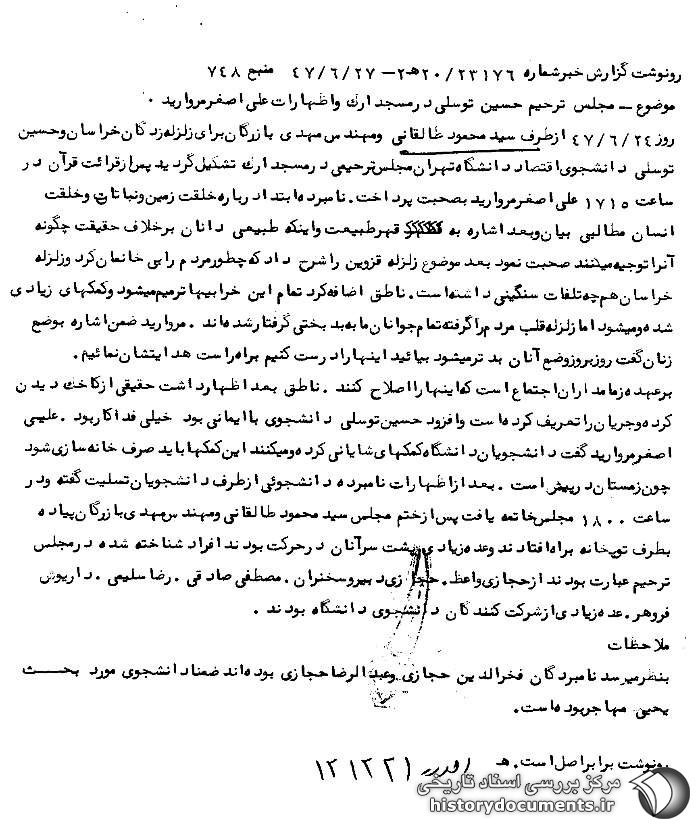 رونوشت گزارش خبرشماره ۲۰/۲۳۱۷۶هـ۲ – ۴۷/۶/۲۷ منبع ۷۴۸
موضوع – مجلس ترحیم حسین توسلی در مسجد ارک واظهارات علی اصغر مروارید .
روز ۴۷/۶/۲۴ از طرف سید محمود طالقانی ومهندس مهدی بازرگان برای زلزله زدگان خراسان وحسین
توسلی دانشجوی اقتصاد دانشگاه تهران مجلس ترحیمی در مسجد ارک تشکیل گردید پس از قرائت قرآن در
ساعت ۱۷۱۵ علی اصغر مروارید بصحبت پرداخت . نامبرده ابتدا درباره خلقت زمین ونباتات وخلقت
انسان مطالبی بیان وبعد اشاره به قهر طبیعت واینکه طبیعی دانان برخلاف حقیقت چگونه
آنرا توجیه میکنند صحبت نمود بعد موضوع زلزله قزوین را شرح داد که چطور مردم را بی خانمان کرد وزلزله
خراسان هم چه تلفات سنگینی داشته است . ناطق اضافه کرد تمام این خرابیها ترمیم میشود وکمکهای زیادی
شده ومیشود اما زلزله قلب مردم را گرفته تمام جوانان ما به بدبختی گرفتار شده اند . مروارید ضمن اشاره بوضع
زنان گفت روز بروز وضع آنان بدتر میشود بیائید اینها را درست کنیم براه راست هدایتشان نمائیم .
برعهده زمامداران اجتماع است که اینها را اصلاح کنند . ناطق بعد اظهار داشت حقیقی از کاخک دیدن
کرده وجریان را تعریف کرده است وافزود حسین توسلی دانشجوی با ایمانی بود خیلی فداکار بود . علی
اصغر مروارید گفت دانشجویان دانشگاه کمکهای شایانی کرده ومیکنند این کمکها باید صرف خانه سازی شود
چون زمستان در پیش است . بعد از اظهارات نامبرده دانشجوئی از طرف دانشجویان تسلیت گفته ودر
ساعت ۱۸۰۰ مجلس خاتمه یافت پس از ختم مجلس سید محمود طالقانی ومهندس مهدی بازرگان پیاده
بطرف توپخانه براه افتادند وعده زیادی پشت سر آنان در حرکت بودند افراد شناخته شده در مجلس
ترحیم عبارت بودند از حجازی واعظ . حجازی دبیر وسخنران . مصطفی صادقی . رضا سلیمی . داریوش
فروهر . عده زیادی از شرکت کنندگان دانشجوی دانشگاه بودند .
ملاحظات
بنظر میرسد نامبردگان فخرالدین حجازی وعبدالرضا حجازی بوده اند ضمنا دانشجوی مورد بحث
یحیی مهاجر بوده است .
رونوشت برابر اصل است . هـ
مرکز بررسی اسناد تاریخی
historydocuments.ir